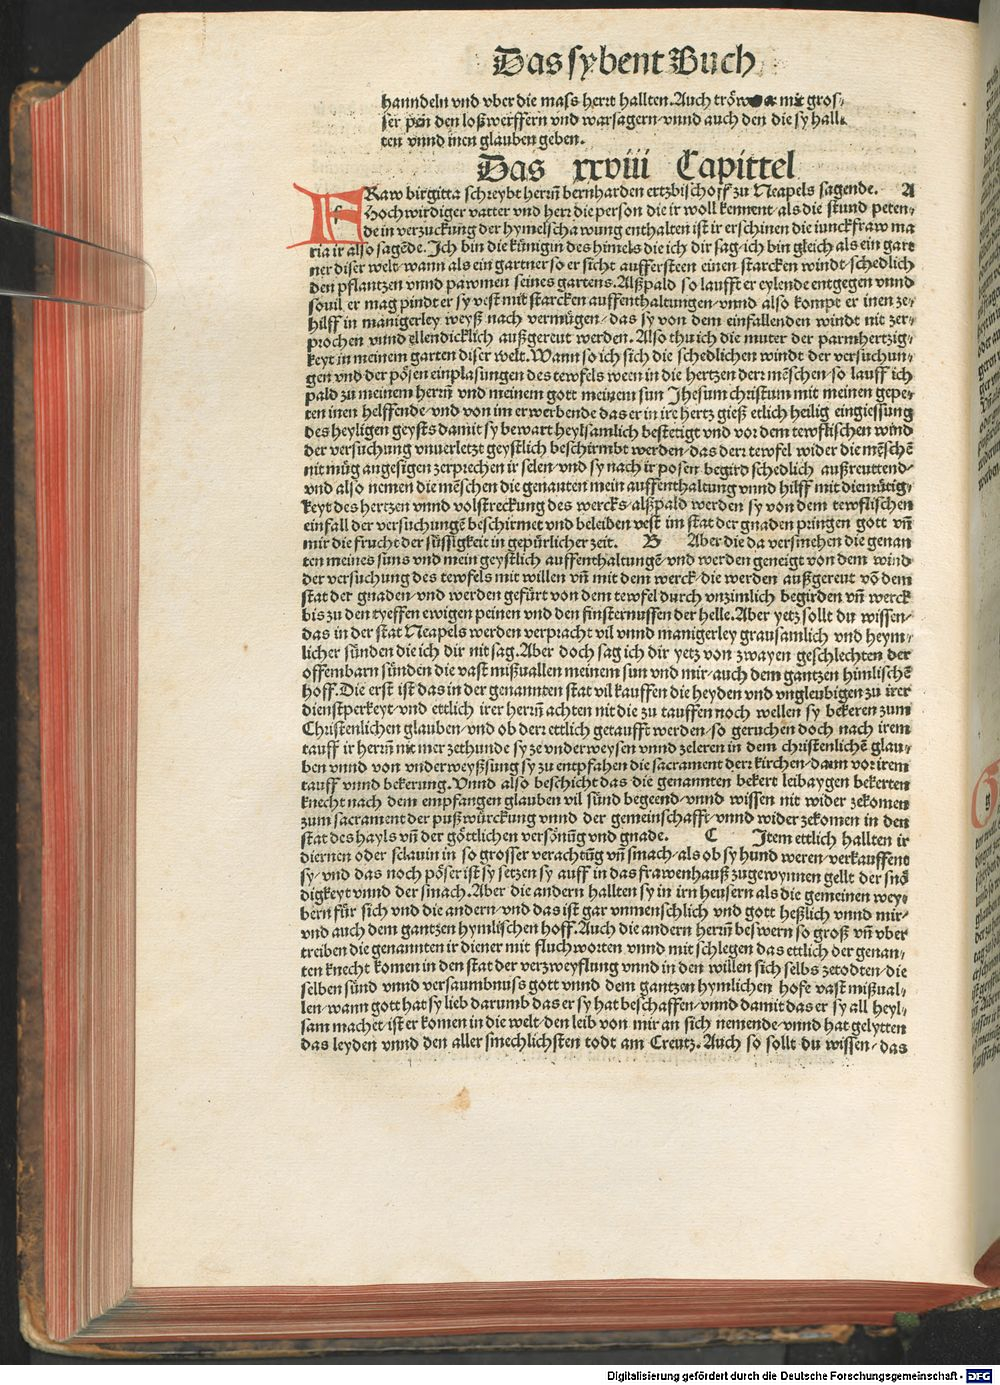 Das sybent Buch
hanndeln vnd vber die mass herrt hallten. Auch tröw mit gros⸗
ser pen den loßwerffern vnd warsagern/vnnd auch den die sy hall⸗
ten vnnd inen glauben geben.
Das xxviii Capittel
FRaw birgitta schreybt herrn̄ bernharden ertzbischoff zu Neapels sagende. A
Hochwirdiger vatter vnd herr die person die ir woll kennent/als die stund peten⸗
de in verzuckung der hymelschawung enthalten ist ir erschinen die iunckfraw ma
ria ir also sagēde. Ich bin die künigin des himels die ich dir sag/ich bin gleich als ein gart
ner diser welt/wann als ein gartner so er sicht auffersteen einen starcken windt/schedlich
den pflantzen vnnd pawmen seines gartens. Alßpald so laufft er eylende entgegen vnnd
souil er mag pindt er sy vest mit starcken auffenthaltungen/vnnd also kompt er inen ze⸗
hilff in manigerley weyß nach vermügen/das sy von dem einfallenden windt nit zer⸗
prochen vnnd ellendicklich außgereut werden. Also thu ich die muter der parmhertzig⸗
keyt in meinem garten diser welt. Wann so ich sich die schedlichen windt der versuchun⸗
gen vnd der pösen einplasungen des tewfels ween in die hertzen derr mēschen/so lauff ich
pald zu meinem herrn̄ vnd meinem gott meinem sun Jhesum christum mit meinen gepe⸗
ten inen helffende/vnd von im erwerbende das er in ire hertz gieß etlich heilig eingiessung
des heyligen geysts damit sy bewart heylsamlich bestetigt vnd vor dem tewflischen wind
der versuchung vnuerletzt geystlich beschirmbt werden/das derr tewfel wider die mēschē
nit müg angesigen zerprechen ir selen/vnd sy nach ir posen begird schedlich außreuttend/
vnd also nemen die mēschen die genanten mein auffenthaltung vnnd hilff mit diemütig⸗
keyt des hertzen vnnd volstreckung des wercks/alßpald werden sy von dem tewflischen
einfall der versuchungē beschirmet vnd beleiben vest im stat der gnaden pringen gott vn̄
mir die frucht der süssigkeit in gepürlicher zeit. B Aber die da versmehen die genan
ten meines suns vnd mein geystlich auffenthaltungē/vnd werden geneigt von dem wind
der versuchung des tewfels mit willen vn̄ mit dem werck/die werden außgereut vō dem
stat der gnaden/vnd werden gefürt von dem tewfel durch vnzimlich begirden vn̄ werck
bis zu den tyeffen ewigen peinen vnd den finsternussen der helle. Aber yetz sollt du wissen/
das in der stat Neapels werden verpracht vil vnnd manigerley grausamlich vnd heym⸗
licher sünden die ich dir nit sag. Aber doch sag ich dir yetz von zwayen geschlechten der
offembarn sünden die vast mißuallen meinem sun vnd mir/auch dem gantzen himlischē
hoff. Die erst ist das in der genannten stat vil kauffen die heyden vnd vngleubigen zu irer
dienstperkeyt/vnd ettlich irer herrn̄ achten nit die zu tauffen noch wellen sy bekeren zum
Christenlichen glauben/vnd ob derr ettlich getaufft werden/so geruchen doch nach irem
tauff ir herrn̄ nit mer zethunde sy ze vnderweysen vnnd zeleren in dem christenlichē glau⸗
ben vnnd von vnderweyßsung sy zu entpfahen die sacrament derr kirchen/dann vor irem
tauff vnnd bekerung. Vnnd also beschicht das die genannten bekert leibaygen bekerten
knecht nach dem empfangen glauben vil sünd begeend/vnnd wissen nit wider zekomen
zum sacrament der pußwürckung vnnd der gemeinschafft/vnnd wider zekomen in den
stat des hayls vn̄ der göttlichen versönūg vnd gnade. C Item ettlich hallten ir
diernen oder sclauin in so grosser verachtūg vn̄ smach/als ob sy hund weren/verkauffent
sy/vnd das noch pöser ist sy setzen sy auff in das frawenhauß zugewynnen gellt der snö
digkeyt vnnd der smach. Aber die andern hallten sy in irn heusern als die gemeinen wey⸗
bern für sich vnd die andern/vnd das ist gar vnmenschlich vnd gott heßlich vnnd mir/
vnd auch dem gantzen hymlischen hoff. Auch die andern herrn̄ beswern so groß vn̄ vber
treiben die genannten ir diener mit fluchworten vnnd mit schlegen das ettlich der genan⸗
ten knecht komen in den stat der verzweyflung vnnd in den willen sich selbs zetodten/die
selben sünd vnnd versaumbnuss gott vnnd dem gantzen hymlichen hofe vast mißual⸗
len/wann gott hat sy lieb darumb das er sy hat beschaffen/vnnd damit das er sy all heyl⸗
sam machet/ist er komen in die welt/den leib von mir an sich nemende/vnnd hat gelytten
das leyden vnnd den aller smechlichsten todt am Creutz. Auch so sollt du wissen/das
Digitalisierung gefördert durch die Deutsche Forschungsgemeinschaft - DFG